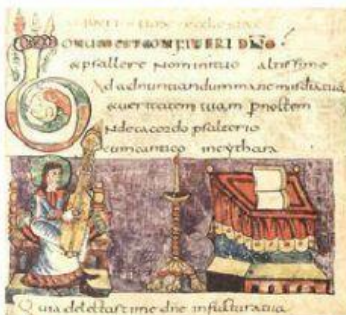 BONUM EST CONFITERI DNO
& psallere nomini tuo altissime
Ad adnuntiandum mane tua
& ueritatem tuam p noctem
In decacordo psalterio
cum cantico in cythara
Quia delectasti me dne in factura tua